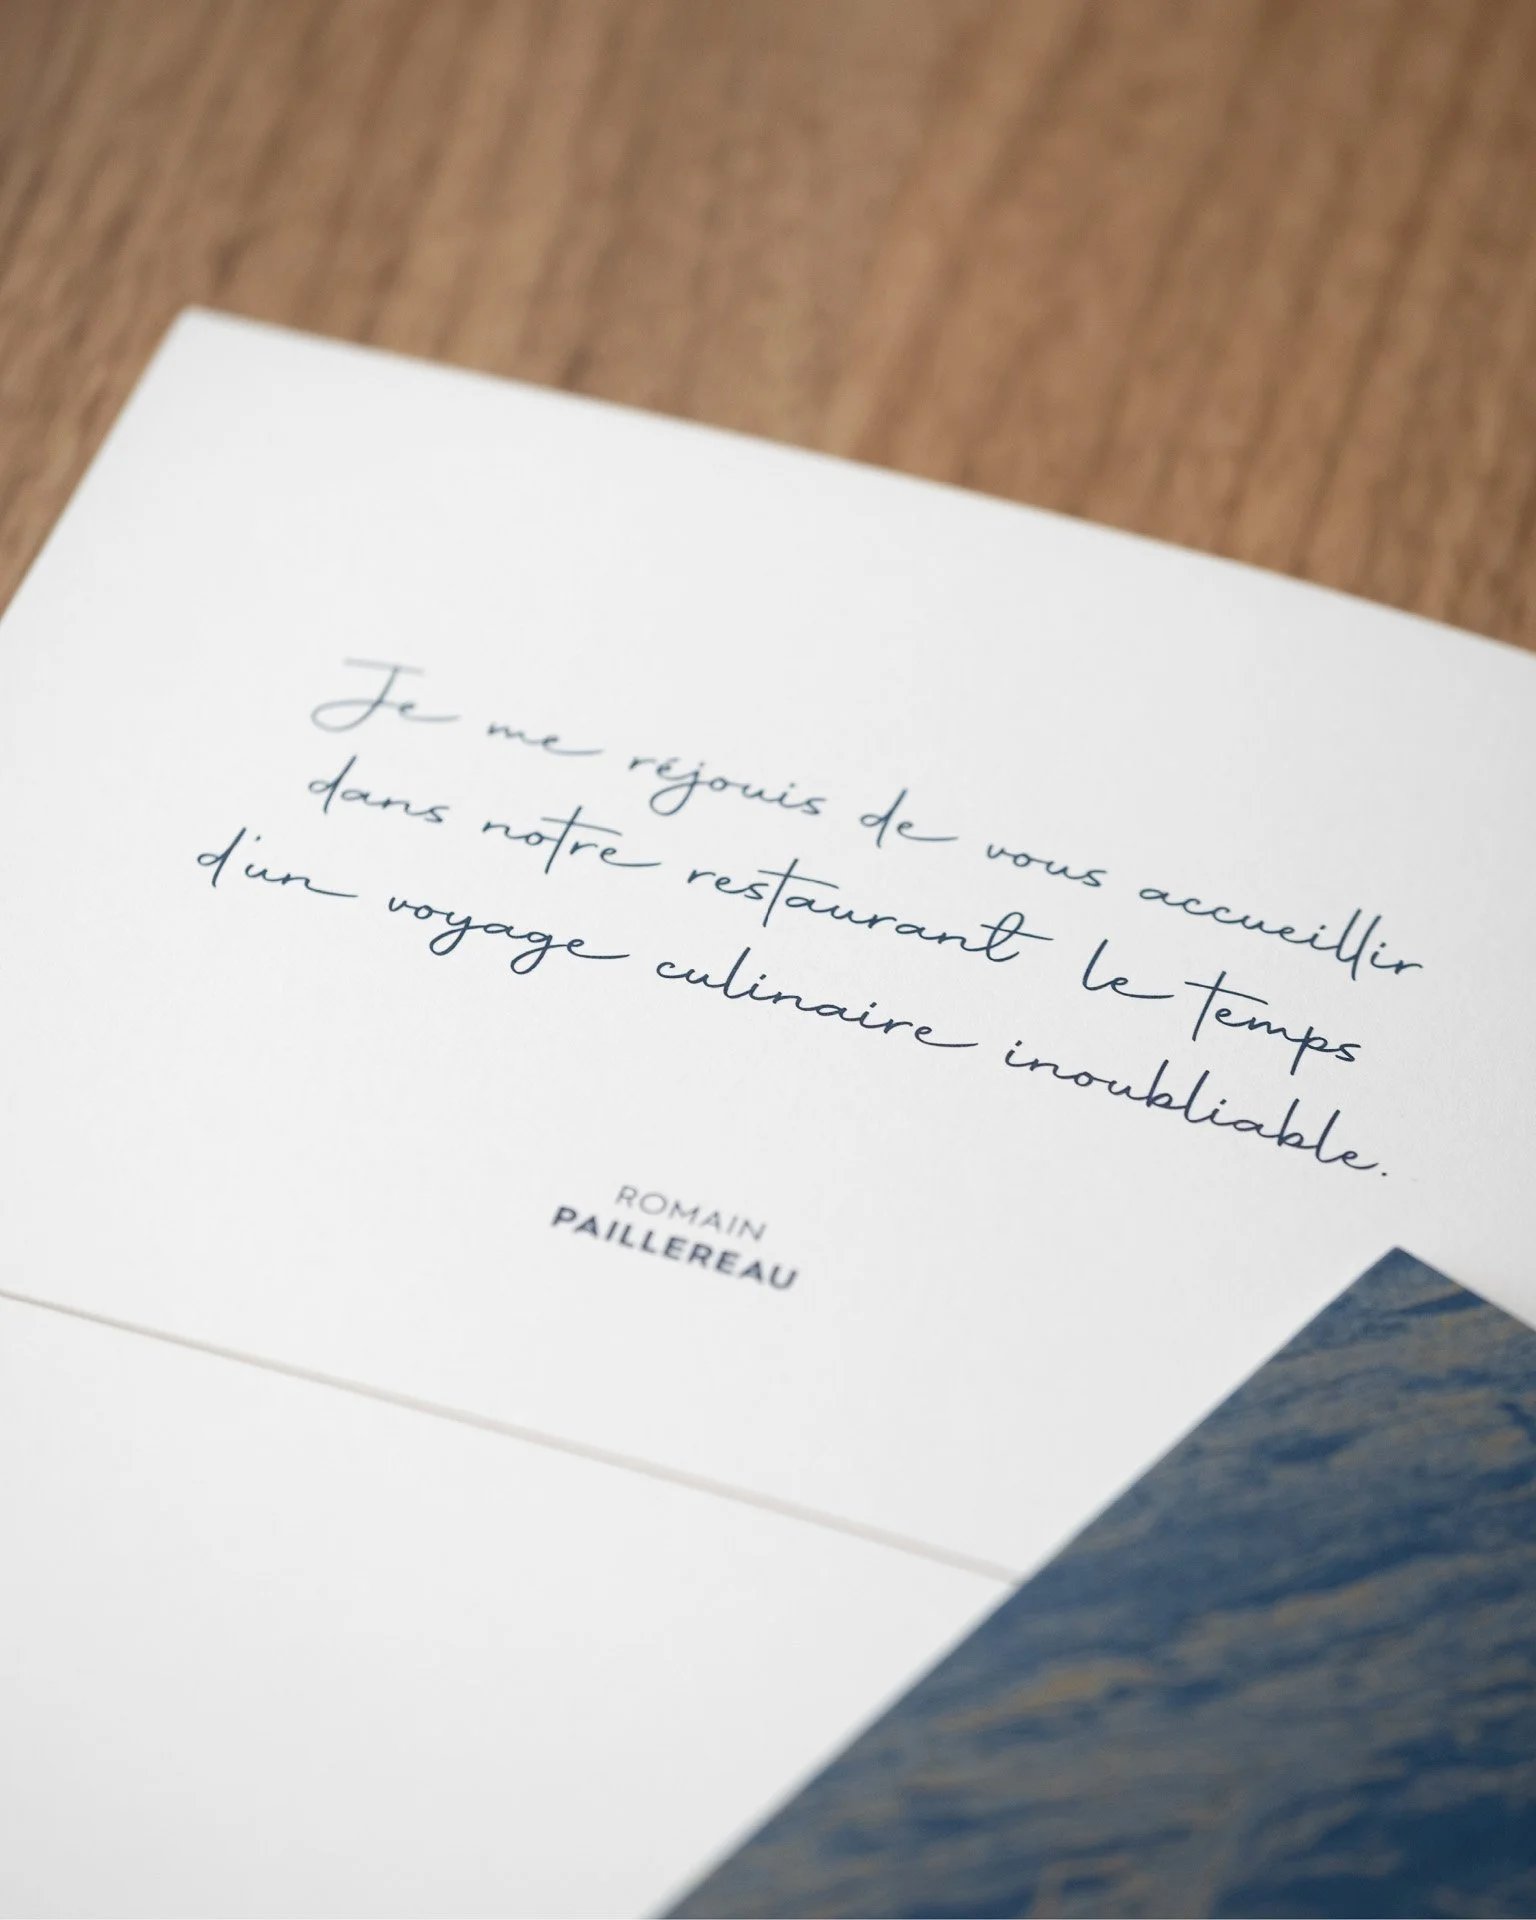 Je me réjouis de vous accueillir
dans notre restaurant le temps
d'un voyage culinaire inoubliable.
ROMAIN
PAILLEREAU